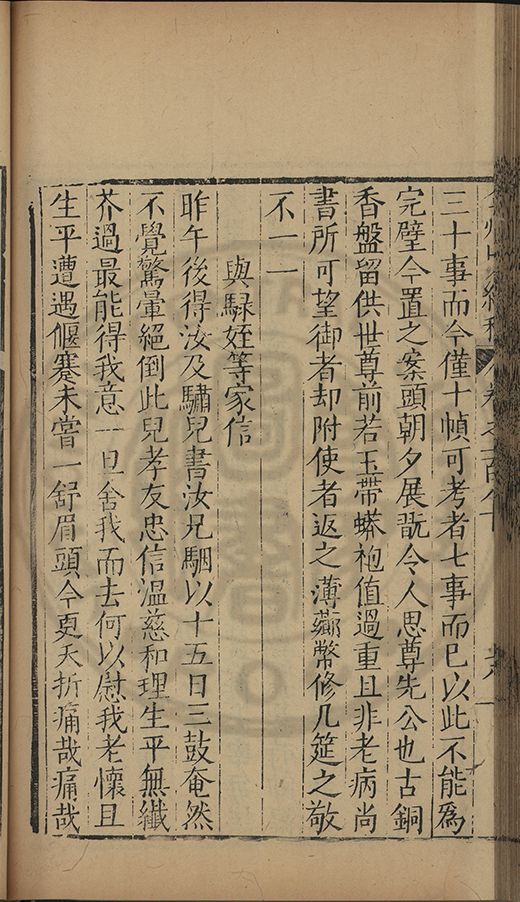 三十事而今僅十幀可考者七事而已以此不能爲
完璧今置之案頭朝夕展翫令人思尊先公也古銅
香盤留供世尊前若玉帶蟒袍值過重且非老病尚
書所可望御者却附使者返之薄薌幣修几筵之敬
不一一
與騄姪等家信
昨午後得汝及驌兒書汝兄駰以十五日三鼓奄然
不覺驚暈絕倒此兒孝友忠信溫慈和理生平無纖
芥過最能得我意一旦舍我而去何以慰我老懷且
生平遭遇偃蹇未嘗一舒眉頭今更夭折痛哉痛哉